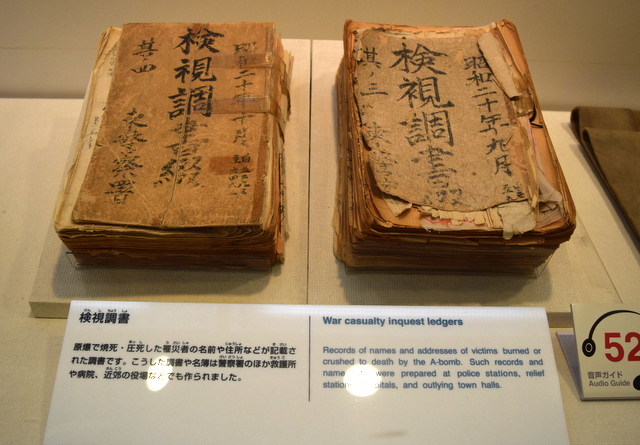 昭和二十年十月
検視調書綴
其ノ四
東警察署
昭和二十年九月
検視調書
其ノ三
東
検視調書
原爆で焼死・圧死した罹災者の名前や住所などが記載さ
れた調書です。こうした調書や名簿は警察署のほか救護所
や病院、近郊の役場などでも作られました。
War casualty inquest ledgers
Records of names and addresses of victims burned or
crushed to death by the A-bomb. Such records and
name were prepared at police stations, relief
stations, hospitals, and outlying town halls.
52
音声ガイド
Audio Guide